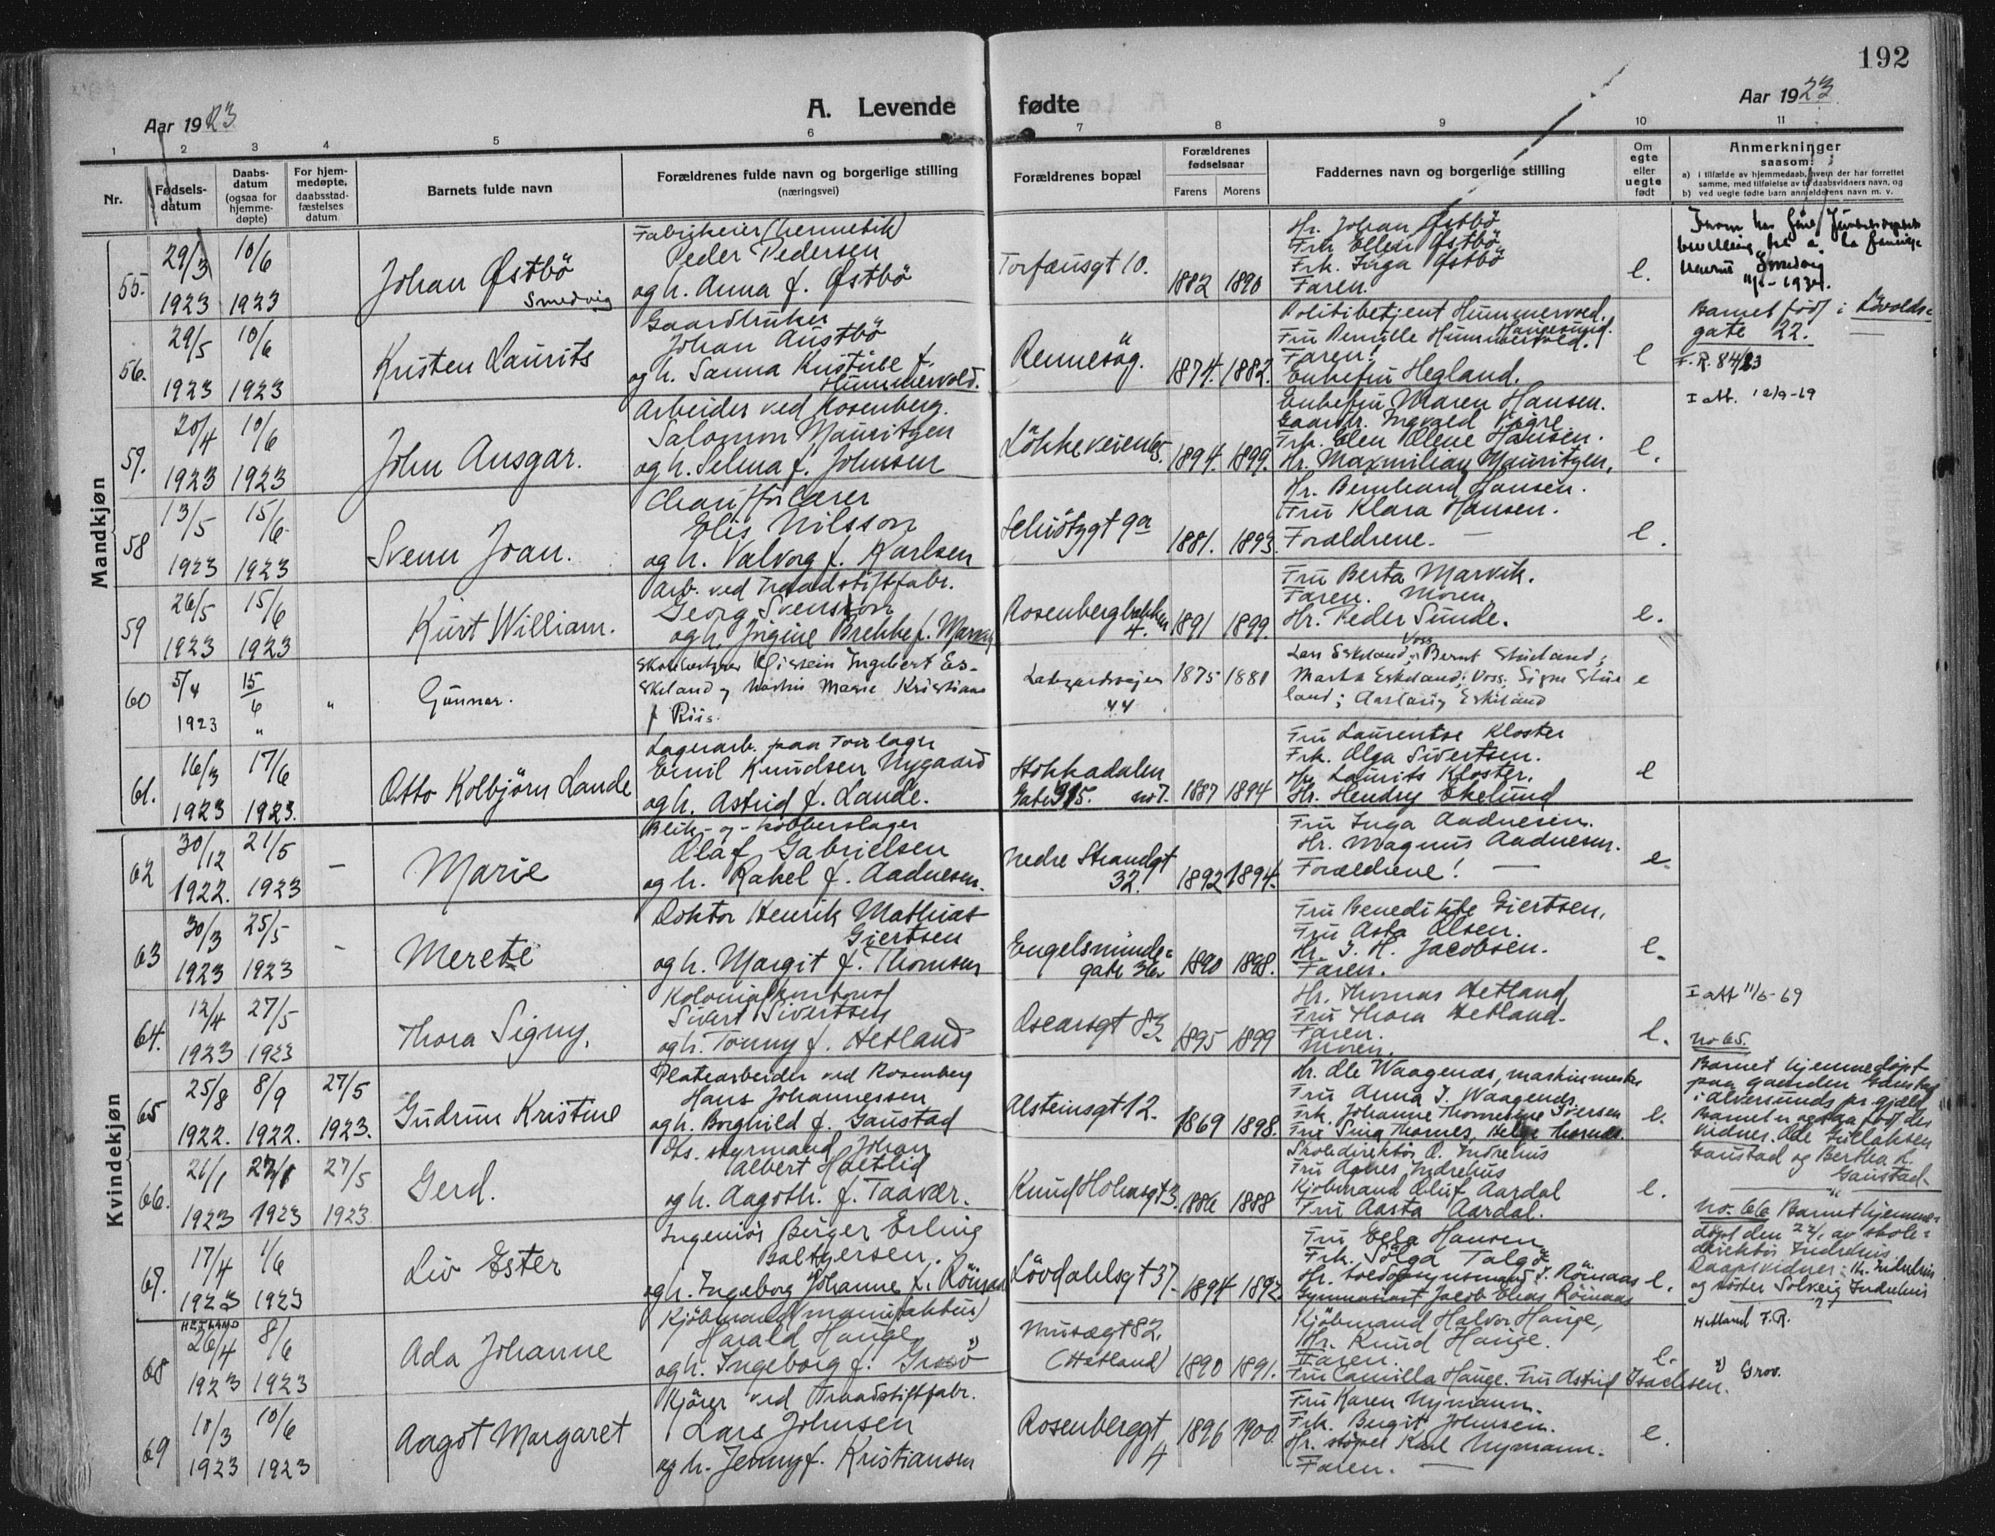 192
Aar 1923
A. Levende fødte
Aar 1923
1 2 3 4 5 6 7 8 9 10 11
Nr.
Fødsels-
datum
Daabs-
datum
(ogsaa for
hjemme-
døpte)
For hjem-
medøpte,
daabsstad-
fæstelses
datum
Barnets fulde navn
Forældrenes fulde navn og borgerlige stilling
(næringsvei)
Forældrenes bopæl
Forældrenes
fødselsaar
Farens Morens
Faddernes navn og borgerlige stilling
Om
egte
eller
uegte
født
Anmerkninger
saasom:
a) i tilfælde av hjemmedaab, hvem der har forrettet
samme, med tilføielse av to daabsvidners navn, og
b) ved uegte fødte barn anmelderens navn m. v.
Mandkjøn
55.
29/3 1923
10/6 1923
Johan Østbö
Smedvig
Fabrikeier (hermetik)
Peder Pedersen
og h. Anna f. Østbö
Torfæusgt 10.
1882 1890
Hr. Johan Østbö
Fru Ellen Østbö
Frk. Inga Østbö
Faren.
e.
bevilling til å ta familie
navnet Smedvig
56.
29/5 1923
10/6 1923
Kristen Laurits
Gaardbruker
Johan Austbö
og h. Sanna Kristine f.
Hummervold.
Rennesög.
1874. 1882.
Politibetjent Hummervold.
Fru Pernille Hummervold. Haugesund.
Faren.
Enkefru Hegland.
e
Barnet född i Lövolds=
gate 22.
F.R. 84/23
I att. 12/9-69
57.
20/4 1923
10/6 1923
John Ansgar.
Arbeider ved Rosenberg.
Salomon Mauritzen
og h. Selma f. Johnsen
Lökkeveien
1894. 1899.
Enkefru Maren Hansen.
Gaardbr. Ingvald Vigre
Frk. Elen Olene Hansen.
Hr. Maxmilian Mauritzen.
e.
58
13/5 1923
15/6 1923
Svenn Joan.
Chaufförlærer
Elis Nilsson
og h. Valborg f. Karlsen
Schiötzgt 9a
1881. 1893.
Hr. Bernhard Hansen.
Fru Klara Hansen.
Forældrene. —
e.
59
26/5 1923
15/6 1923
Kurt William.
Arb. ved Traadstiftfabr.
Georg Svenson
og h. Jrigine Brekke f. Marvik
Rosenbergbakken
4.
1891 1899.
Fru Berta Marvik.
Faren. Moren.
Hr. Peder Sunde.
e.
60
5/4 1923
15/6 "
"
Gunnar.
Skolebestyrer Eistein Ingebert Es-
Eskeland og hustru Marie Kristiane
f. Riis.
Ladegaardsveien
44
1875 1881
Lars Eskeland, Voss; Bernt Stueland;
Marta Eskeland, Voss; Signe Stue
land; Aaslaug Eskeland
e
61.
16/3 1923
17/6 1923.
Otto Kolbjörn Lande
Lagerarb. paa Tourlager
Emil Knudsen Nygaard
og h. Astrid f. Lande.
Stokkadalen
Gate 915. no 7.
1887 1894
Fru Laurentse Kloster
Frk. Olga Sivertsen.
Hr. Laurits Kloster.
Hr. Hendry Ekelund
e
Kvindekjøn
62
30/12 1922.
21/5 1923
—
Marie
Blik- og kobberslager
Olaf Gabrielsen
og h. Rakel f. Aadnesen.
Nedre Strandgt
32.
1892 1894.
Fru Inga Aadnesen.
Hr. Magnus Aadnesen.
Forældrene! —
e.
63
30/3 1923
25/5 1923
—
Merete
Doktor Henrik Mathias
Gjertsen
og h. Margit f. Thomsen
Engelsminde=
gate 36.
1890 1898.
Fru Benedikte Giertsen.
Fru Asta Olsen.
Hr. J. H. Jacobsen.
Faren.
e.
64.
12/4 1923
27/5 1923
Thora Signy.
Kolonialkontorist
Sivert Sivertsen
og h. Tonny f. Hetland
Oscarsgt 83
1895 1899
Hr. Thomas Hetland
Fru Thora Hetland.
Faren.
Moren.
e.
I att 11/5-69
65
25/8 1922.
8/9 1922.
27/5 1923.
Gudrun Kristine
Platearbeider ved Rosenberg
Hans Johannessen
og h. Borghild f. Gaustad
Alsteinsgt 12.
1869 1898.
Hr. Ole Waagenæs, maskinmester
Fru Anna J. Waagenæs
Frk. Johanne Thomesine Iversen
Fru Sina Thornes, Helge Thornes.
e.
No 65.
Barnet hjemmedöpt
paa gaarden Gaustad
i Alversunds pr.gjeld
Barnet er ogsaa född der
Vidner. Ole Gullaksen
Gaustad og Bertha L.
Gaustad.
66.
21/1 1923
22/1 1923
27/5 1923
Gerd.
Ets. styrmand Johan
Albert Haatlid
og h. Aagoth. f. Taavær.
Knud Holmsgt 3.
1886 1888
Skoledirektör O. Indrehus
Fru Agnes Indrehus
Kjöbmand Oluf Aardal
Fru Aasta Aardal.
e.
No. 66 Barnet hjemme=
döpt den 22/1 av skole=
direktör Indrehus.
Daapsvidner: Hr. Indrehus
og söster Solveig Indrehus
67.
17/4 1923
1/6 1923
Liv Ester
Ingeniör Birger Erling
Baltzersen.
og h. Ingeborg Johanne f. Römaas
Lövdahlsgt 37.
1894 1892.
Fru Ella Hansen
Frk. Solga Talgö
Hr. Veiopsynsmand J. Römaas
Gymnasiast Jacob Elias Römaas
e.
68
HETLAND
26/4 1923
8/6 1923
Ada Johanne
Kjöbmand (manufaktur)
Harald Hauge
og h. Ingeborg f. Grov
Muségt 82.
(Hetland)
1890 1891.
Kjöbmand Halvor Hauge,
Hr. Knud Hauge.
Faren.
Fru Camilla Hauge. Fru Astrid Isachsen.
e.
Hetland F.R.
Grov.
69
10/3 1923
10/6 1923
Aagot Margaret
Kjörer ved Traadstiftfabr.
Lars Johnsen
og h. Jenny f. Kristiansen
Rosenberggt
4
1896 1900.
Fru Karen Nymann.
Frk. Bergit Johnsen.
Hr. stöper Karl Nymann.
Faren. —
e.